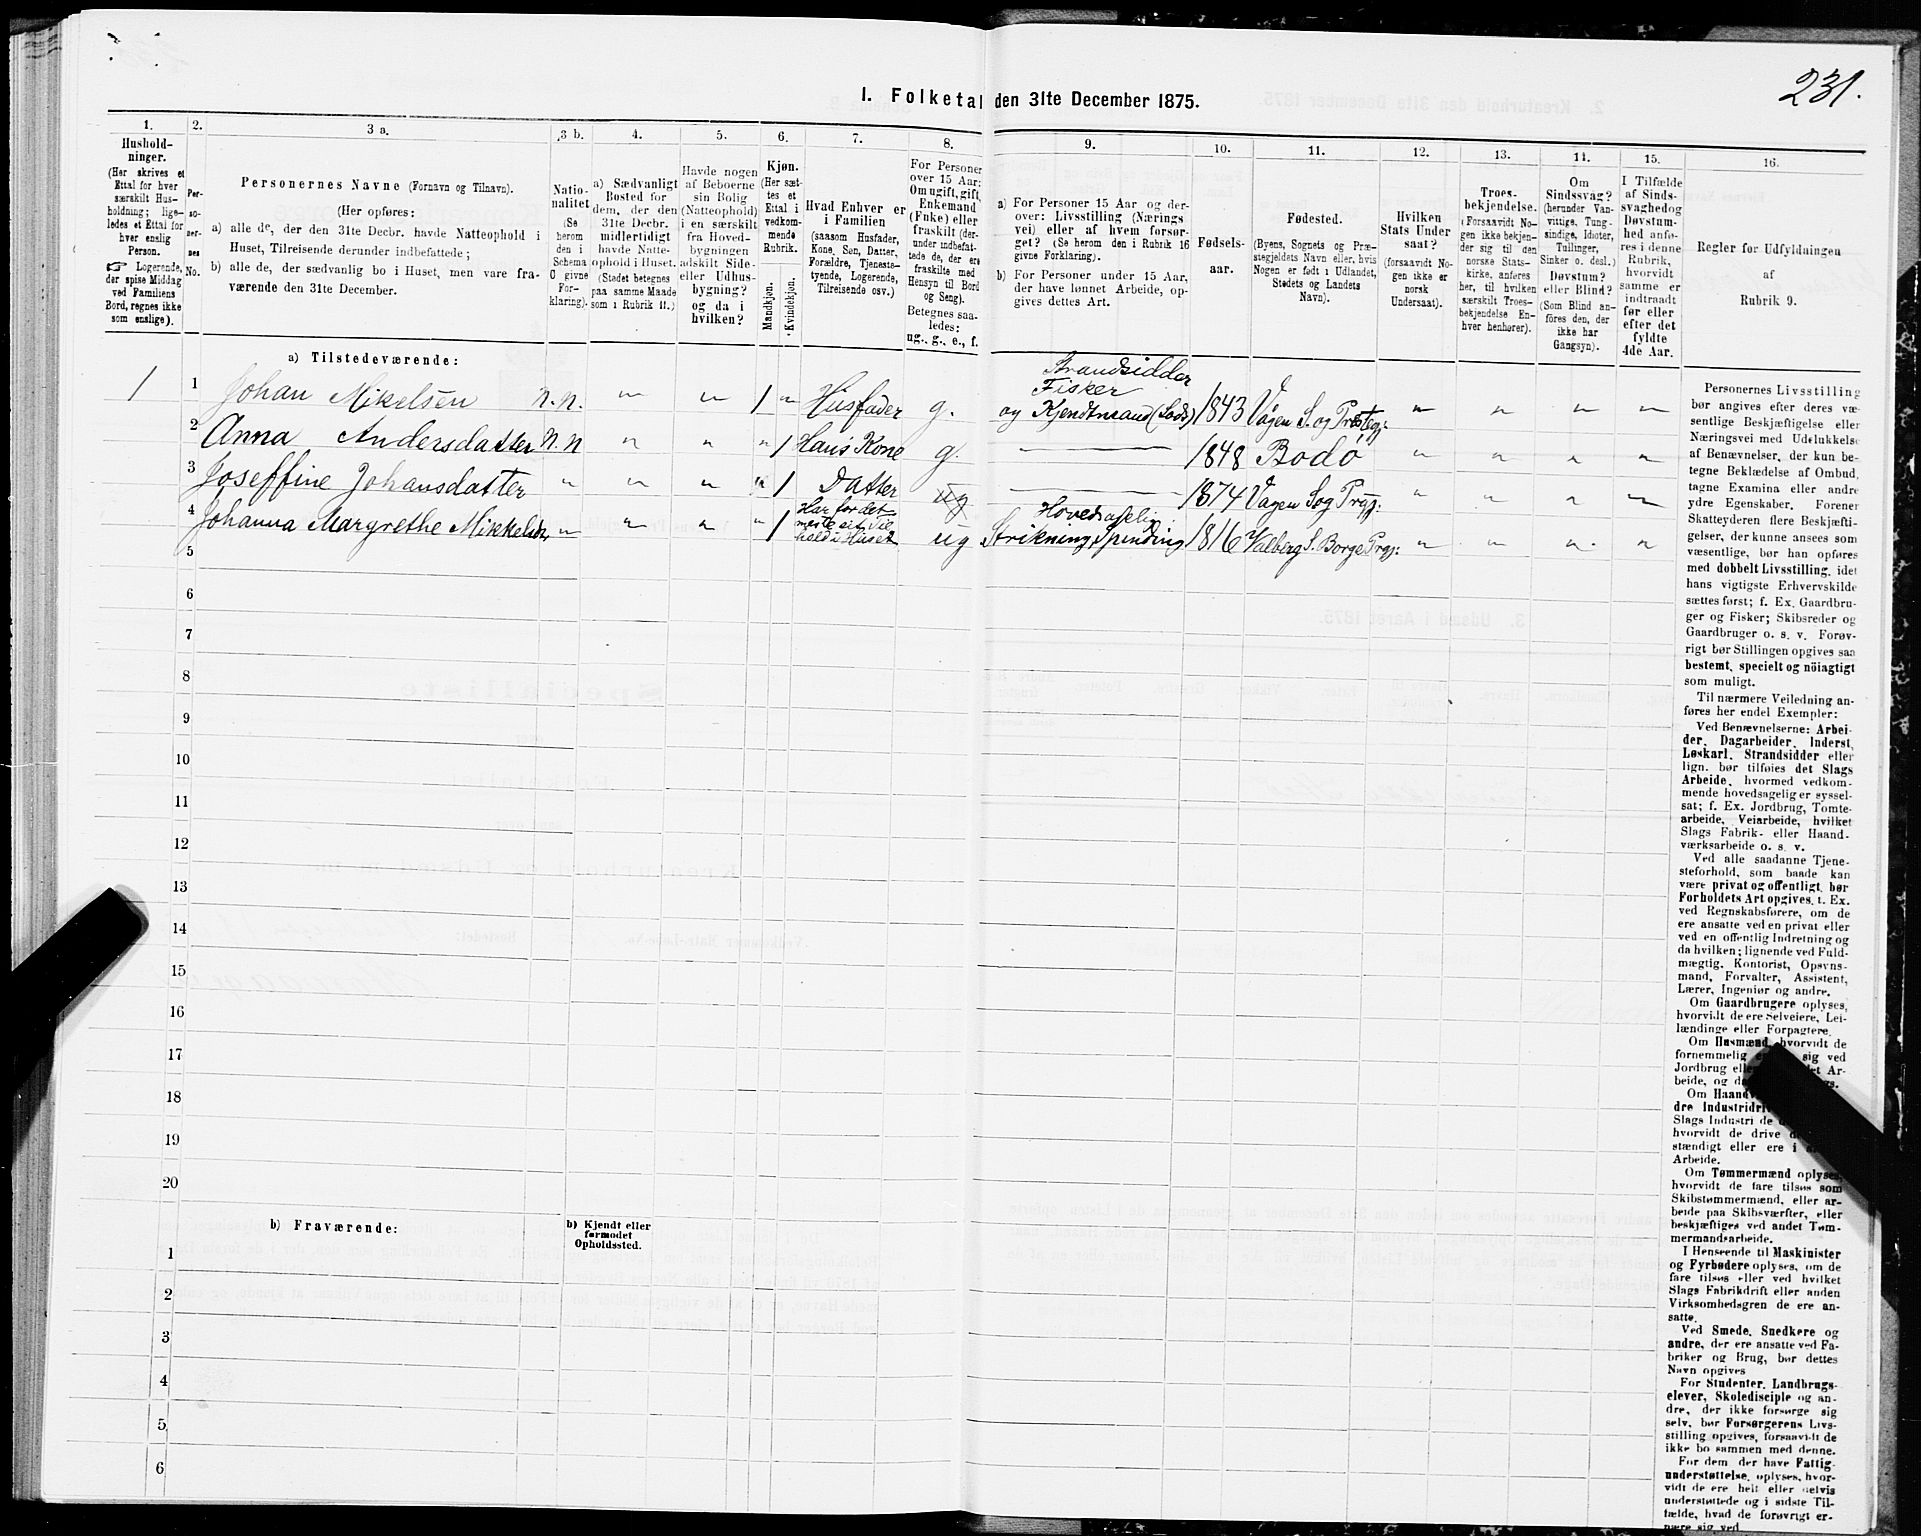 231.
1. Folketal den 31te December 1875.
1. 2. 3 a. 3 b. 4. 5. 6. 7. 8. 9. 10. 11. 12. 13. 14. 15. 16.
Hushold-
ninger.
(Her skrives et
Ettal for hver
særskilt Hus-
holdning; lige-
ledes et Ettal for
hver enslig
Person.
☞ Logerende,
der spise Middag
ved Familiens
Bord, regnes ikke
som enslige).
Per-
so-
ner-
nes
No.
Personernes Navne (Fornavn og Tilnavn).
(Her opføres:
a) alle de, der den 31te Decbr. havde Natteophold i
Huset, Tilreisende derunder indbefattede;
b) alle de, der sædvanlig bo i Huset, men vare fra-
værende den 31te December.
Natio-
nalitet
(Se
herom
den i
Schema
O givne
For-
klaring).
a) Sædvanligt
Bosted for
dem, der den
31te Decbr.
midlertidigt
havde Natte-
ophold i Huset.
(Stedet betegnes
paa samme Maade
som i Rubrik 11.)
Havde nogen
af Beboerne
sin Bolig
(Natteophold)
i en særskilt
fra Hoved-
bygningen
adskilt Side-
eller Udhus-
bygning?
og da i
hvilken?
Kjøn.
(Her sæt-
tes et
Ettal i
vedkom-
mende
Rubrik.
Mandkjøn.
Kvindekjøn.
Hvad Enhver er
i Familien
(saasom Husfader,
Kone, Søn, Datter,
Forældre, Tjeneste-
tyende, Logerende,
Tilreisende osv.)
For Personer
over 15 Aar:
Om ugift, gift,
Enkemand
(Enke) eller
fraskilt (der-
under indbefat-
tede de, der ere
fraskilte med
Hensyn til Bord
og Seng).
Betegnes saa-
ledes:
ug., g., e., f.
a) For Personer 15 Aar og der-
over: Livsstilling (Nærings
vei) eller af hvem forsør-
get? (Se herom den i Rubrik 16
givne Forklaring).
b) For Personer under 15 Aar,
der have lønnet Arbeide, op-
gives dettes Art.
Fødsels-
aar.
Fødested.
(Byens, Sognets og Præ-
stegjeldets Navn eller, hvis
Nogen er født i Udlandet,
Stedets og Landets
Navn).
Hvilken
Stats Under
saat?
(forsaavidt No-
gen ikke er
norsk
Undersaat).
Troes-
bekjendelse.
(Forsaavidt No-
gen ikke bekjen-
der sig til den
norske Stats-
kirke, anføres
her, til hvilken
særskilt Troes-
bekjendelse En-
hver henhører).
Om
Sindssvag?
(herunder Van-
vittige, Tung-
sindige, Idioter,
Tullinger,
Sinker o. desl.)
Døvstum?
eller Blind?
(Som Blind an-
føres den, der
ikke har
Gangsyn).
I Tilfælde
af Sinds-
svaghed og
Døvstum-
hed anfø-
res i denne
Rubrik,
hvorvidt
samme er
indtraadt
før eller
efter det
fyldte
4de Aar.
Regler for Udfyldningen
af
Rubrik 9.
a) Tilstedeværende:
Strandsidder
Fisker
1 1 Johan Mikelsen n.n. " " 1 " Husfader g. og Kjendtmand (Lods) 1843 Vågen S. og Præstegj: " " " "
2 Anna Andersdatter N.n " " " 1 Hans Kone g. — 1848 Bodø " " " "
3 Joseffine Johansdatter " " " " 1 Datter ug — 1874 Vagen Sog Prgj: " " " "
Har for det meste sit Tilhold i Huset
Hovedsagelig
4 Johanna Margrethe Mikkelsd. " " " " 1 ug Strikning, Spinding 1816 Valberg S. Borge Prgj: " " " "
5
6
7
8
9
10
11
12
13
14
15
16
17
18
19
20
b) Fraværende:
b) Kjendt eller
formodet
Opholdssted.
1
2
3
4
5
6
Personernes Livsstilling
bør angives efter deres væ-
sentlige Beskjæftigelse eller
Næringsvei med Udelukkelse
af Benævnelser, der kun be-
tegne Beklædelse af Ombud,
tagne Examina eller andre
ydre Egenskaber. Forener
Skatteyderen flere Beskjæfti-
gelser, der kunne ansees som
væsentlige, bør han opføres
med dobbelt Livsstilling, idet
hans vigtigste Erhvervskilde
sættes først; f. Ex. Gaardbru-
ger og Fisker; Skibsreder og
Gaardbruger o. s. v. Forøv-
rigt bør Stillingen opgives saa
bestemt, specielt og nöiagtigt
som muligt.
Til nærmere Veiledning an-
føres her endel Exempler:
Ved Benævnelserne: Arbei-
der, Dagarbeider, Inderst,
Løskarl, Strandsidder eller
lign. bør tilføies det Slags
Arbeide, hvormed vedkom-
mende hovedsagelig er syssel-
sat; f. Ex. Jordbrug, Tomte-
arbeide, Veiarbeide, hvilket
Slags Fabrik- eller Haand-
værksarbeide o. s. v.
Ved alle saadanne Tjene-
steforhold, som baade kan
være privat og offentligt, bør
Forholdets Art opgives, t. Ex.
ved Regnskabsførere, om de
ere ansatte ved en privat eller
ved en offentlig Indretning og
da hvilken; lignende ved Fuld-
mægtig, Kontorist, Opsyns-
mand, Forvalter, Assistent,
Lærer, Ingeniør og andre.
Om Gaardbrugere oplyses,
hvorvidt de ere Selveiere, Lei-
lændinge eller Forpagtere.
Om Husmænd, hvorvidt de
fornemmelig sig ved
Jordbrug Ar-
beide, og
Om Haand
dre Industridri
Slags Industri de
hvorvidt de drive
stændigt eller ere i
Arbeide.
Om Tømmermænd oplyses,
hvorvidt de fare tilsøs som
Skibstømmermænd, eller ar-
beide paa Skibsværfter, eller
beskjæftiges ved andet Tøm-
mermandsarbeide.
I Henseende til Maskinister
og Fyrbødere oplyses, om de
fare tilsøs eller ved hvilket
Slags Fabrikdrift eller anden
Virksomhedsgren de ere an-
satte.
Ved Smede, Snedkere og
andre, der ere ansatte ved Fa-
briker og Brug, bør dettes
Navn opgives
For Studenter, Landbrugs-
elever, Skoledisciple og an-
dre, der ikke forsørge sig
selv, bør Forsørgerens Livs-
stilling opgives, forsaavidt de
ikke bo sammen med denne.
For dem der have Fattig-
understøttelse, oplyses, hvor-
vidt de ere helt eller delvis
understøttede og i sidste Til-
fælde, hvad de forøvrigt er-
nære sig ved